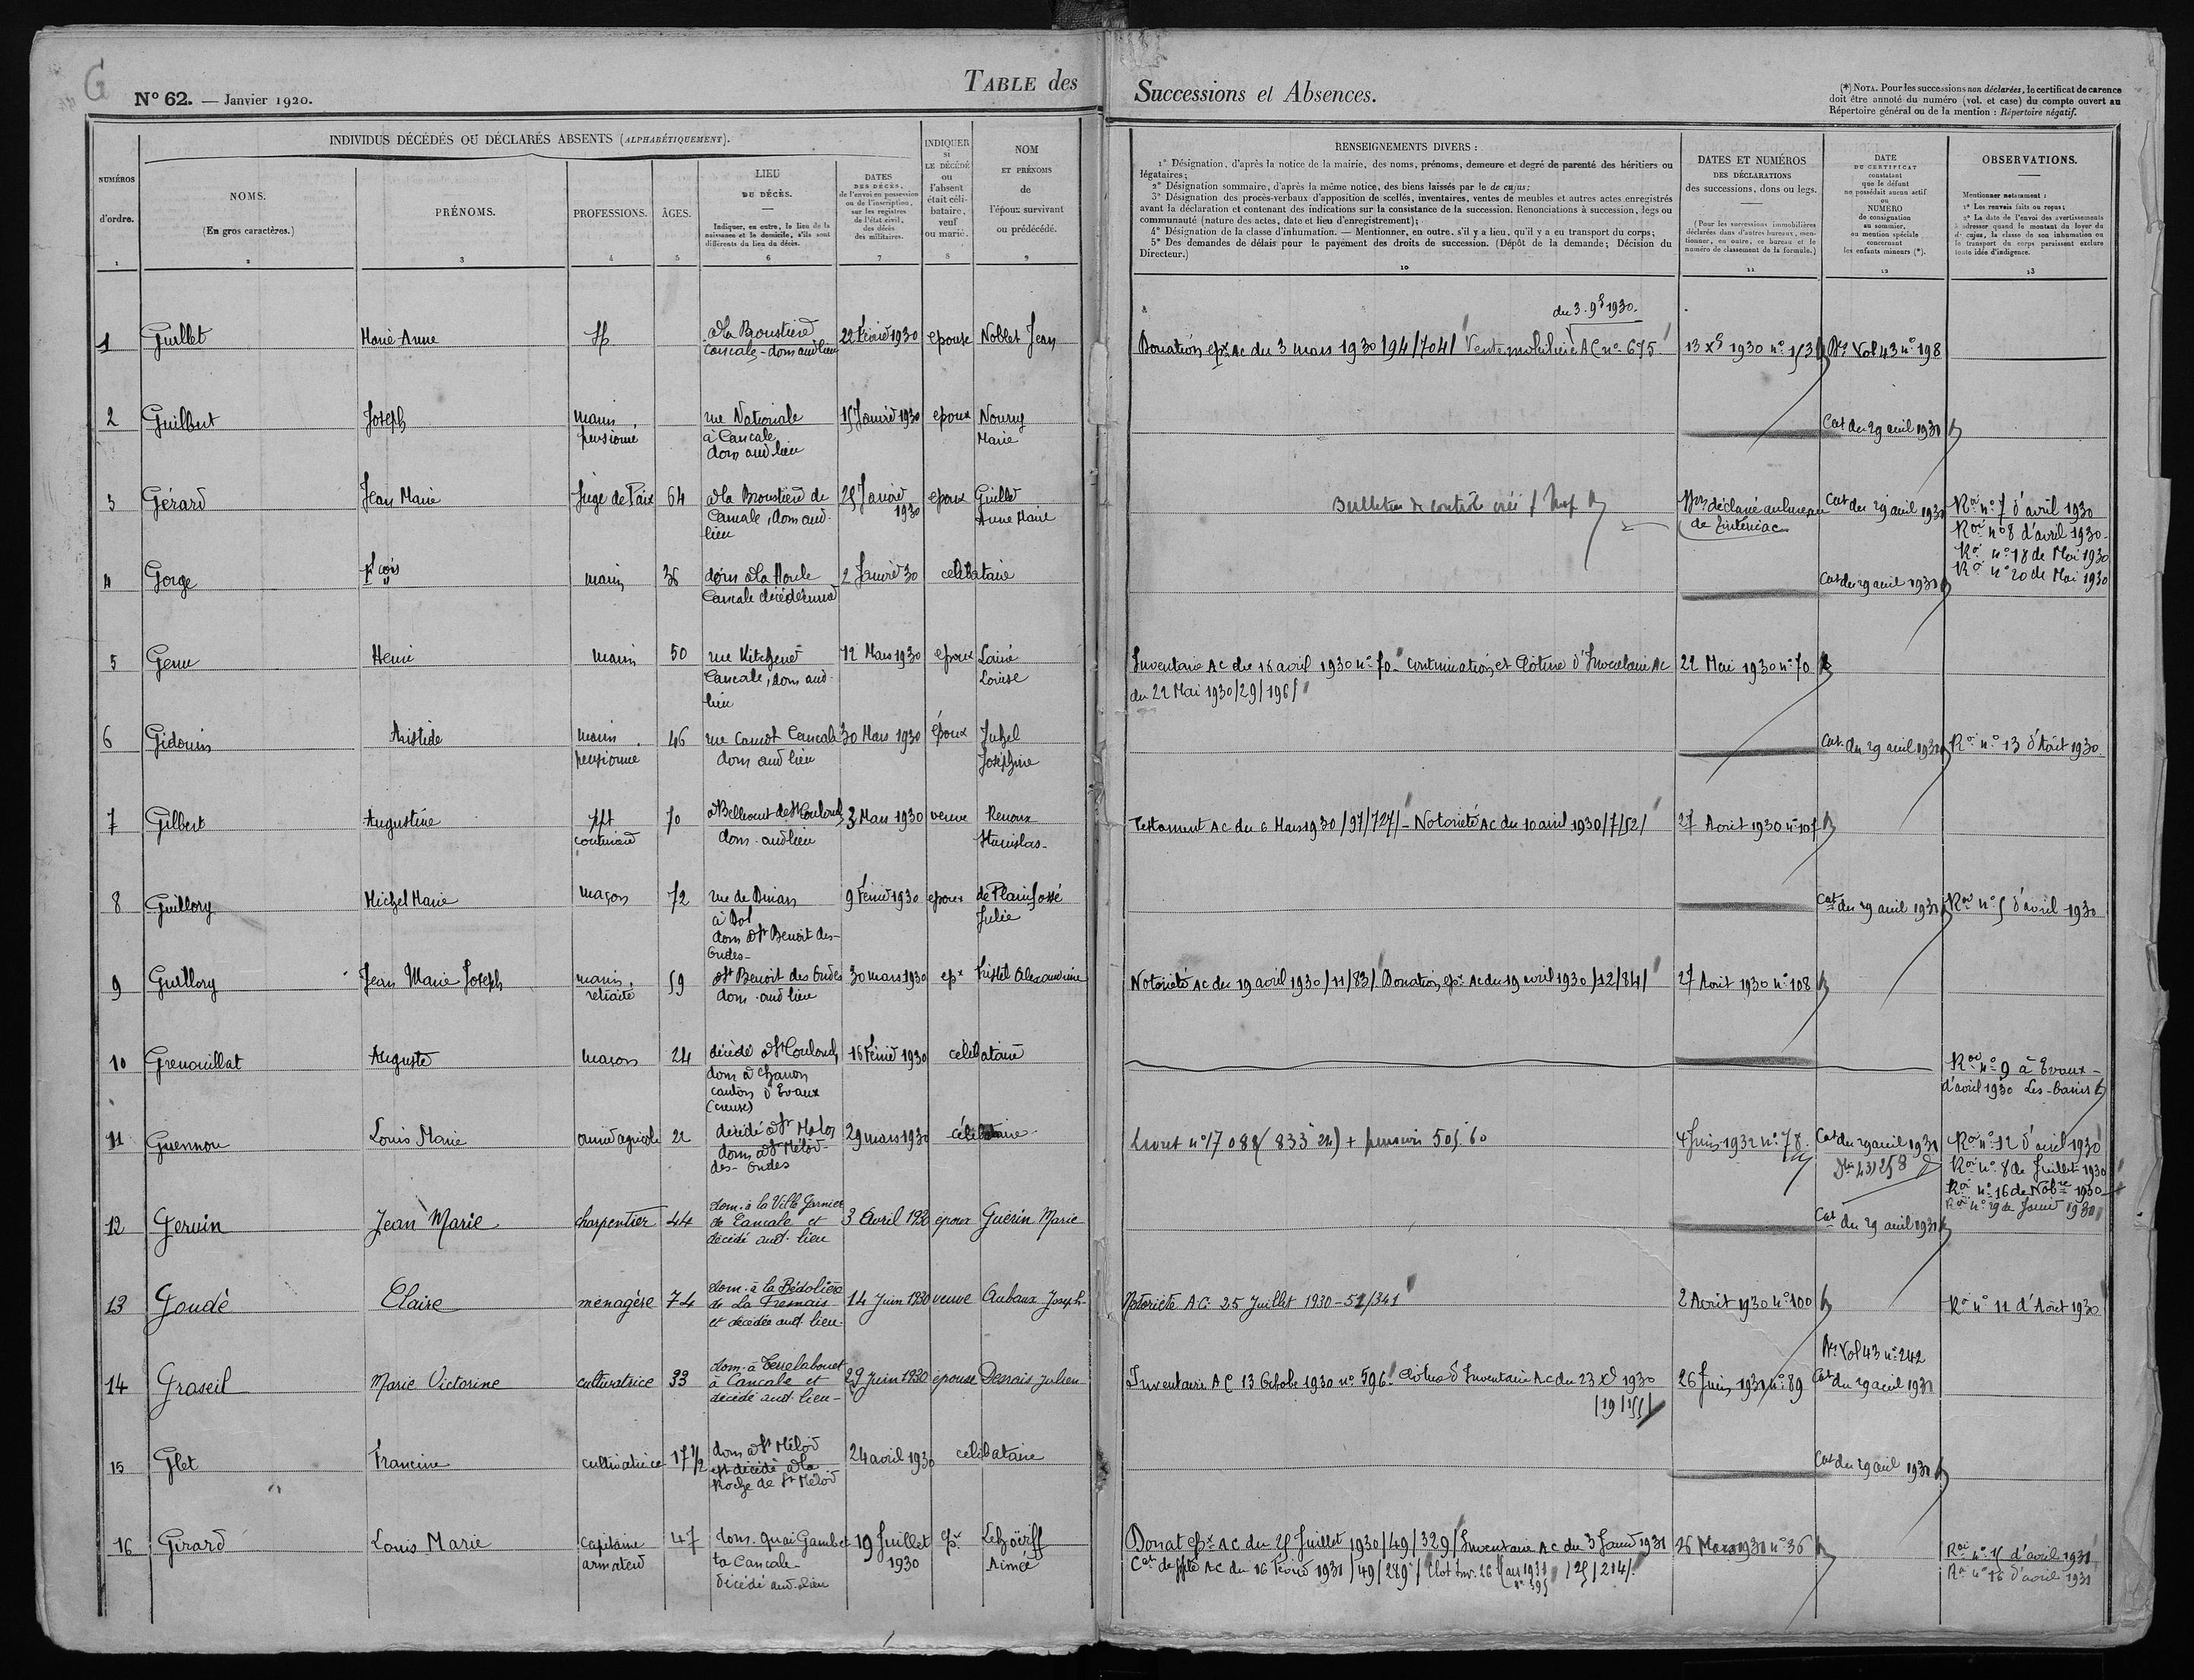 G
Nº 62. — Janvier 1920.
TABLE des Successions et Absences.
(*) NOTA. Pour les successions non déclarées, le certificat de carence
doit être annoté du numéro (vol. et case) du compte ouvert au
Répertoire général ou de la mention : Répertoire négatif.
NUMÉROS
d'ordre.
1
INDIVIDUS DÉCÉDÉS OU DÉCLARÉS ABSENTS (ALPHABÉTIQUEMENT).
NOMS.
(En gros caractères.)
2
PRÉNOMS.
3
PROFESSIONS.
4
ÂGES.
5
LIEU
DU DÉCÈS.
Indiquer, en outre, le lieu de la
naissance et le domicile, s'ils sont
différents du lieu du décès.
6
DATES
DES DÉCÈS,
de l'envoi en possession
ou de l'inscription,
sur les registres
de l'état civil,
des décès
des militaires.
7
INDIQUER
si
LE DÉCÉDÉ
ou
l'absent
était céli-
bataire,
veuf
ou marié.
8
NOM
ET PRÉNOMS
de
l'époux survivant
ou prédécédé.
9
RENSEIGNEMENTS DIVERS :
1° Désignation, d'après la notice de la mairie, des noms, prénoms, demeure et degré de parenté des héritiers ou
légataires;
2° Désignation sommaire, d'après la même notice, des biens laissés par le de cujus;
3° Désignation des procès-verbaux d'apposition de scellés, inventaires, ventes de meubles et autres actes enregistrés
avant la déclaration et contenant des indications sur la consistance de la succession. Renonciations à succession, legs ou
communauté (nature des actes, date et lieu d'enregistrement);
4° Désignation de la classe d'inhumation. — Mentionner, en outre, s'il y a lieu, qu'il y a eu transport du corps;
5° Des demandes de délais pour le payement des droits de succession. (Dépôt de la demande; Décision du
Directeur.)
10
DATES ET NUMÉROS
DES DÉCLARATIONS
des successions, dons ou legs.
(Pour les successions immobilières
déclarées dans d'autres bureaux, men-
tionner, en outre, ce bureau et le
numéro de classement de la formule.)
11
DATE
DU CERTIFICAT
constatant
que le défunt
ne possédait aucun actif
ou
NUMÉRO
de consignation
au sommier,
ou mention spéciale
concernant
les enfants mineurs (*).
12
OBSERVATIONS.
Mentionner notamment :
1° Les renvois faits ou reçus;
2° La date de l'envoi des avertissements
à adresser quand le montant du loyer du
de cujus, la classe de son inhumation ou
le transport du corps paraissent exclure
toute idée d'indigence.
13
du 3. 9e 1930.
1 Guillet Marie Anne à la Broustière 22 Février 1930 epouse Noblet Jean Donation epx AC du 3 mars 1930 /94/704/ Vente mobilière AC nº 675 13 Xe 1930 nº 153 Vol 43 nº 198
Cancale - dom aud lieu
2 Guilbert Joseph marin rue Nationale 15 Janvier 1930 epoux Noury Cat du 29 avril 1931
pensionné à Cancale Marie
dom aud lieu
3 Gérard Jean Marie Juge de Paix 64 à la Broustière de 25 Janvier epoux Guillet Bulletin de contrôle créé déclaré au bureau Cat du 29 avril 1931 Roi nº 7 d'avril 1930
Cancale, dom aud. 1930 Anne Marie de Tinténiac Roi nº 8 d'avril 1930
lieu Roi nº 18 de Mai 1930
4 Gorge fcois marin 36 dom à la Houle 2 Janvier 30 celibataire Cat du 29 avril 1931 Roi nº 20 de Mai 1930
Cancale décédé en mer
5 Genu Henri marin 50 rue Kitchener 12 Mars 1930 epoux Lainé Inventaire AC du 16 avril 1930 nº 70. Continuation et Cloture d'Inventaire AC 22 Mai 1930 nº 70
Cancale, dom aud. Louise du 22 Mai 1930/29/196/
lieu
6 Gidouin Aristide marin 46 rue Carnot Cancale 30 Mars 1930 époux Juhel Cat. du 29 avril 1931 Roi nº 13 d'Août 1930
pensionné dom aud lieu Joséphine
7 Gilbert Augustine 70 à Bellevent de St Coulomb 3 Mars 1930 veuve Renoux Testament AC du 6 Mars 1930 /97/727/ - Notoriété AC du 10 avril 1930/7/52/ 27 Août 1930 nº 107
couturière dom. aud lieu Stanislas
8 Guillory Michel Marie maçon 72 rue de Dinan 9 Février 1930 epoux de Plainfossé Cat du 29 avril 1931 Roi nº 5 d'avril 1930
à Dol Julie
dom à St Benoit des-
Ondes-
9 Guillory Jean Marie Joseph marin 59 à St Benoit des Ondes 30 mars 1930 epx Fristel Alexandrine Notoriété AC du 19 avril 1930/11/83/ Donation epx AC du 19 avril 1930/12/84/ 27 Août 1930 nº 108
retraité dom. aud lieu
10 Grenouillat Auguste maçon 24 décédé à St Coulomb 16 Février 1930 celibataire Roi nº 9 à Evaux-
dom à Charron d'avril 1930 Les-bains
canton d'Evaux
(Creuse)
11 Guennou Louis Marie ouvrier agricole 22 décédé à St Malo 29 mars 1930 célibataire Livret nº 17088 (833f 22) + pension 505f60 4 Juin 1932 nº 78 Cat du 29 avril 1931 Roi nº 12 d'avril 1930
dom à St Méloir- 43/258 Roi nº 8 de Juillet 1930
des-Ondes Roi nº 16 de Nobre 1930
12 Gervin Jean Marie charpentier 44 dom. à la Ville Garnier 3 Avril 1930 epoux Guérin Marie Cat du 29 avril 1931 Roi nº 29 de Janvier 1931
de Cancale et
décédé aud. lieu
13 Goudé Claire ménagère 74 dom. à la Bédolière 14 Juin 1930 veuve Aubaux Joseph Notoriété AC. 25 Juillet 1930-51/341 2 Août 1930 nº 100 Ri nº 11 d'Août 1930
de La Fresnais
et décédée aud. lieu.
Vol 43 nº 242
14 Graseil Marie Victorine cultivatrice 33 dom. à Terrelabouet 29 Juin 1930 epouse Desrais Julien Inventaire AC 13 Octobre 1930 nº 596. Cloture d'Inventaire AC du 23 Xe 1930 26 Juin 1931 nº 89 Cat du 29 avril 1931
à Cancale et /19/155/
décédé aud. lieu-
15 Glet Francine cultivatrice 17 1/2 dom à St Méloir 24 avril 1930 celibataire Cat du 29 avril 1931
est décédé à la
Roche de St Méloir
16 Girard Louis Marie Capitaine 47 dom. quai Gambet 19 Juillet epx Lehoërff Donat epx AC du 25 Juillet 1930/49/329/ Inventaire AC du 3 Janv 1931 26 Mars 1931 nº 36 Roi nº 15 d'avril 1931
armateur ta Cancale- 1930 Aimée Cat de ppté AC du 16 Février 1931/49/289/ Clot Inv. 26 Mars 1931 /25/214/. Ri nº 16 d'avril 1931
décédé aud. lieu nº 395